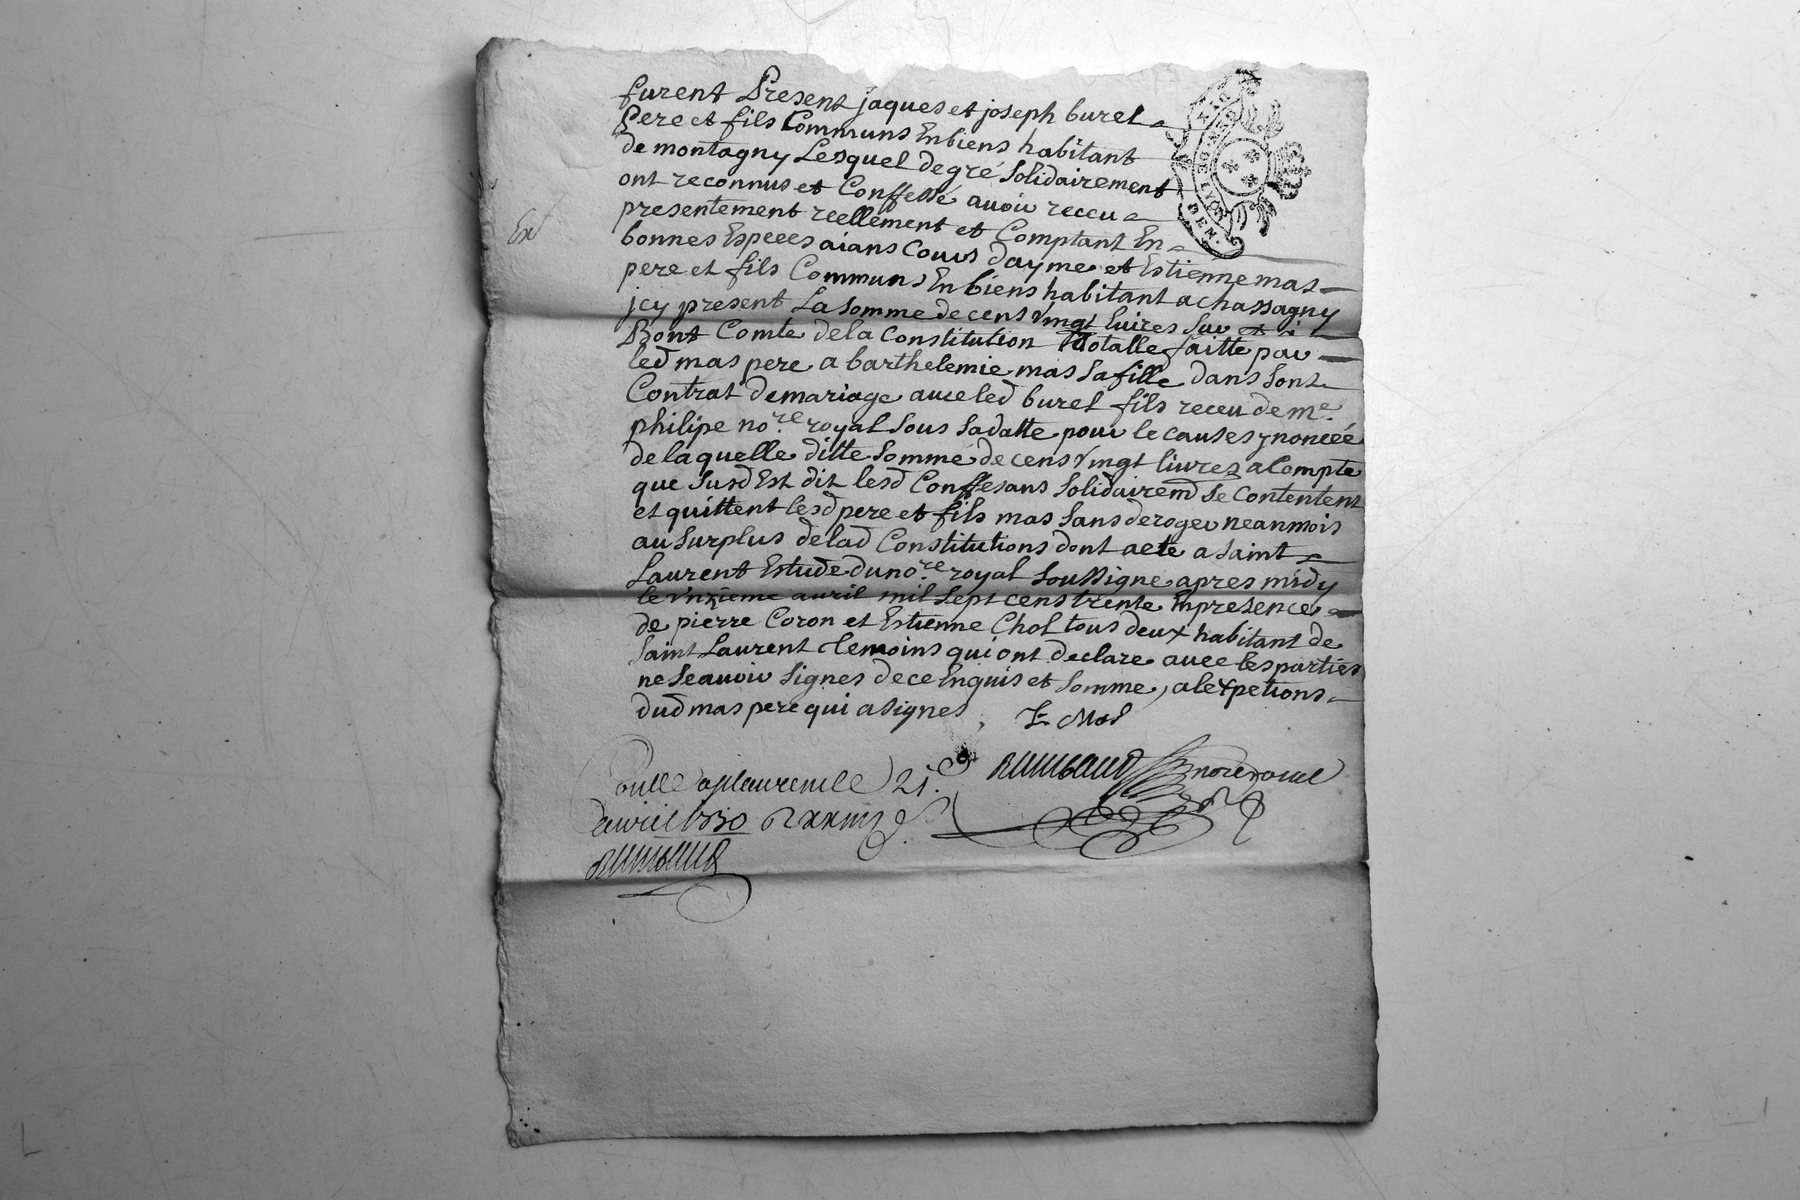 furent Present jaques et joseph burel
Pere et fils Communs En biens habitant
de montagny Lesquel de gré solidairement
ont reconnus et Conffessé avoir receu
presentement reellement et Comptant En
Ex
bonnes Especes aians Cours dayme et Estienne mas
pere et fils Communs En biens habitant a chassagny
jcy present La somme de cens vingt livres sur et à
Bont Comte de la Constitution totalle faitte par
led mas pere a barthelemie mas sa fille dans sont
Contrat de mariage avec led burel fils receu de me
philipe no.re royal sous sa datte pour le causes ynoncéé
de laquelle ditte somme de cens vingt livres a Compte
que susd Est dit lesd Conffesans solidairemd se contentent
et quittent lesd pere et fils mas sans deroger neanmois
au surplus de lad Constitutions dont acte a saint
Laurent Estude du no.re royal soussigne apres midy
le vnzieme avril mil sept cens trente En presence
de pierre Coron et Estienne Chol tous deux habitant de
saint Laurent temoins qui ont declare avec les parties
ne scavoir signes de ce Enquis et somme, a lexpetions
dud mas pere qui a signes
E Mas
le 21
davril 1730